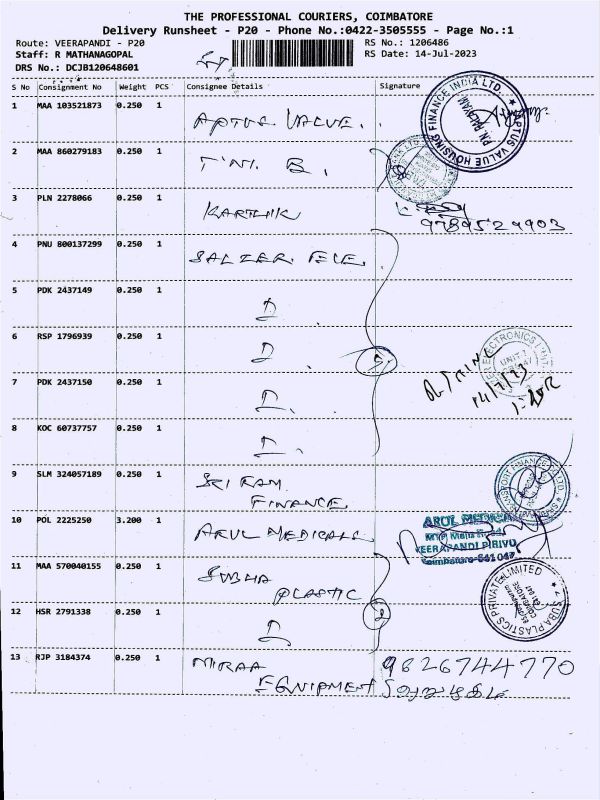 THE PROFESSIONAL COURIERS, COIMBATORE
Delivery Runsheet - P20 - Phone No.:0422-3505555 - Page No.:1
Route: VEERAPANDI - P20
RS No.: 1206486
Staff: R MATHANAGOPAL
RS Date: 14-Jul-2023
DRS No.: DCJB120648601
S No Consignment No Weight PCS Consignee Details Signature
1 MAA 103521873 0.250 1 APTUS VALUE.
APTUS VALUE HOUSING FINANCE INDIA LTD.
2 MAA 860279183 0.250 1 T.N. B.
3 PLN 2278066 0.250 1 KARTHIK
9789529903
4 PNU 800137299 0.250 1 SALZER ELE.
5 PDK 2437149 0.250 1 D
6 RSP 1796939 0.250 1 D
5
UNIT 1
14/7/23
7 PDK 2437150 0.250 1 D
8 KOC 60737757 0.250 1 D
9 SLM 324057189 0.250 1 SRI RAM
FINANCE
10 POL 2225250 3.200 1 ARUL MEDICALS
ARUL MEDICALS
VEERAPANDI PIRIVU
Coimbatore-641 047
11 MAA 570040155 0.250 1 SUBHA
PLASTIC
SUBA PLASTICS PRIVATE LIMITED
12 HSR 2791338 0.250 1 D
2
13 RJP 3184374 0.250 1 NIRAA
EQUIPMENT
9626744770